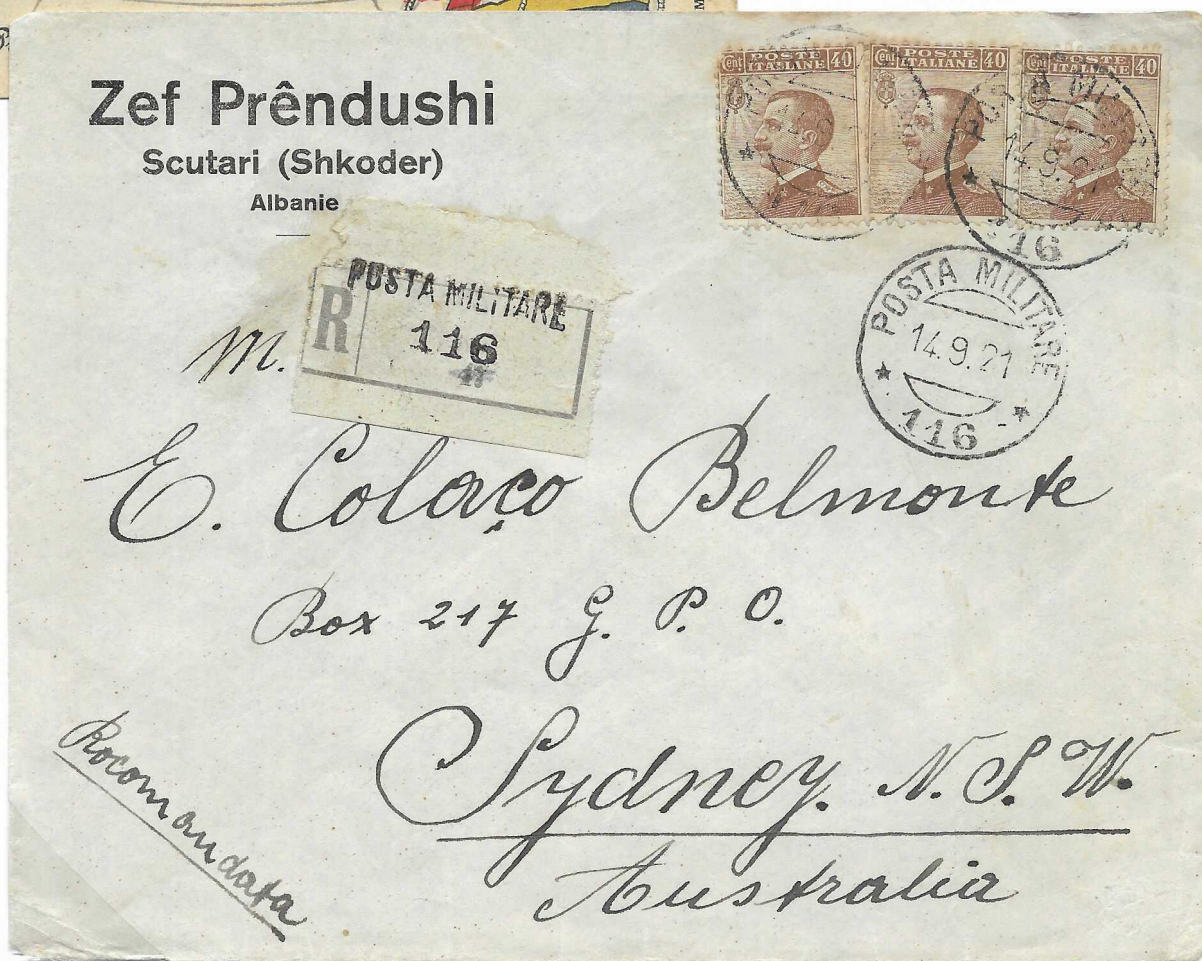 Zef Prêndushi
Scutari (Shkoder)
Albanie
Cent POSTE ITALIANE 40
Cent POSTE ITALIANE 40
Cent POSTE ITALIANE 40
14.9.21
116
POSTA MILITARE
14.9.21
116
R
POSTA MILITARE
116
M.
E. Colaço Belmonte
Box 217 G. P. O.
Sydney. N. S. W.
Australia
Rocomandata